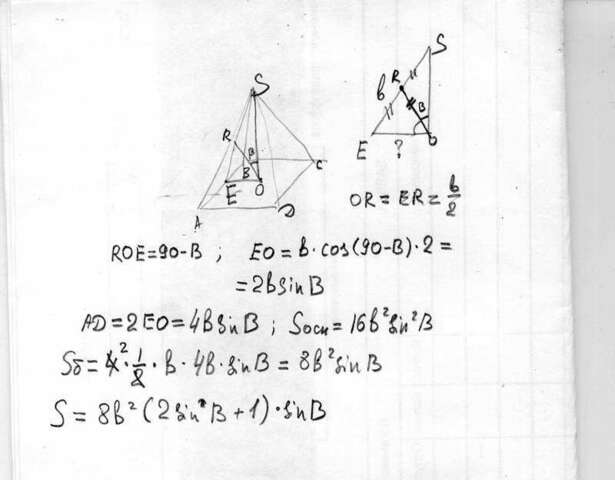 S
R
b
B
E
?
O
S
R
B
B
C
E
O
A
D
OR = ER = b/2
ROE=90-B ; EO = b·cos(90-B)·2 =
= 2bsinB
AD=2EO=4bsinB ; Sосн=16b²sin²B
Sδ = 4²·1/2·b·4b·sinB = 8b²sinB
S = 8b²(2sin B+1)·sinB